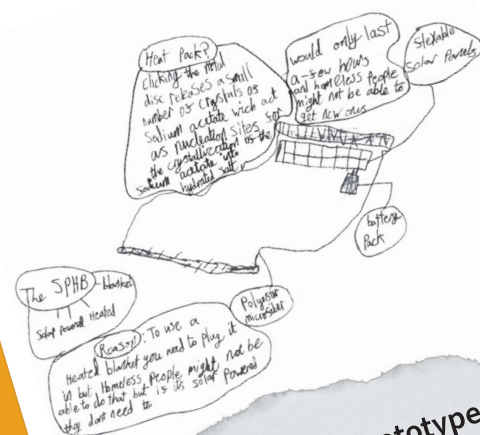 Heat Pack?
clicking the metal
disc releases a small
number of crystals of
Sodium acetate wich act
as nucleation sites for
the crystallization of the
Sodium acetate into
hydrated salt
would only last
a few hours
and homeless people
might not be able to
get new ones
Flexable
Solar Panels
battery
Pack
The SPHB - blanket
Solar Powered Heated
Polyester
microfiber
Reason: To use a
Heated blanket you need to plug it
in but Homeless People might not be
able to do that but is its solar Powered
they dont need to